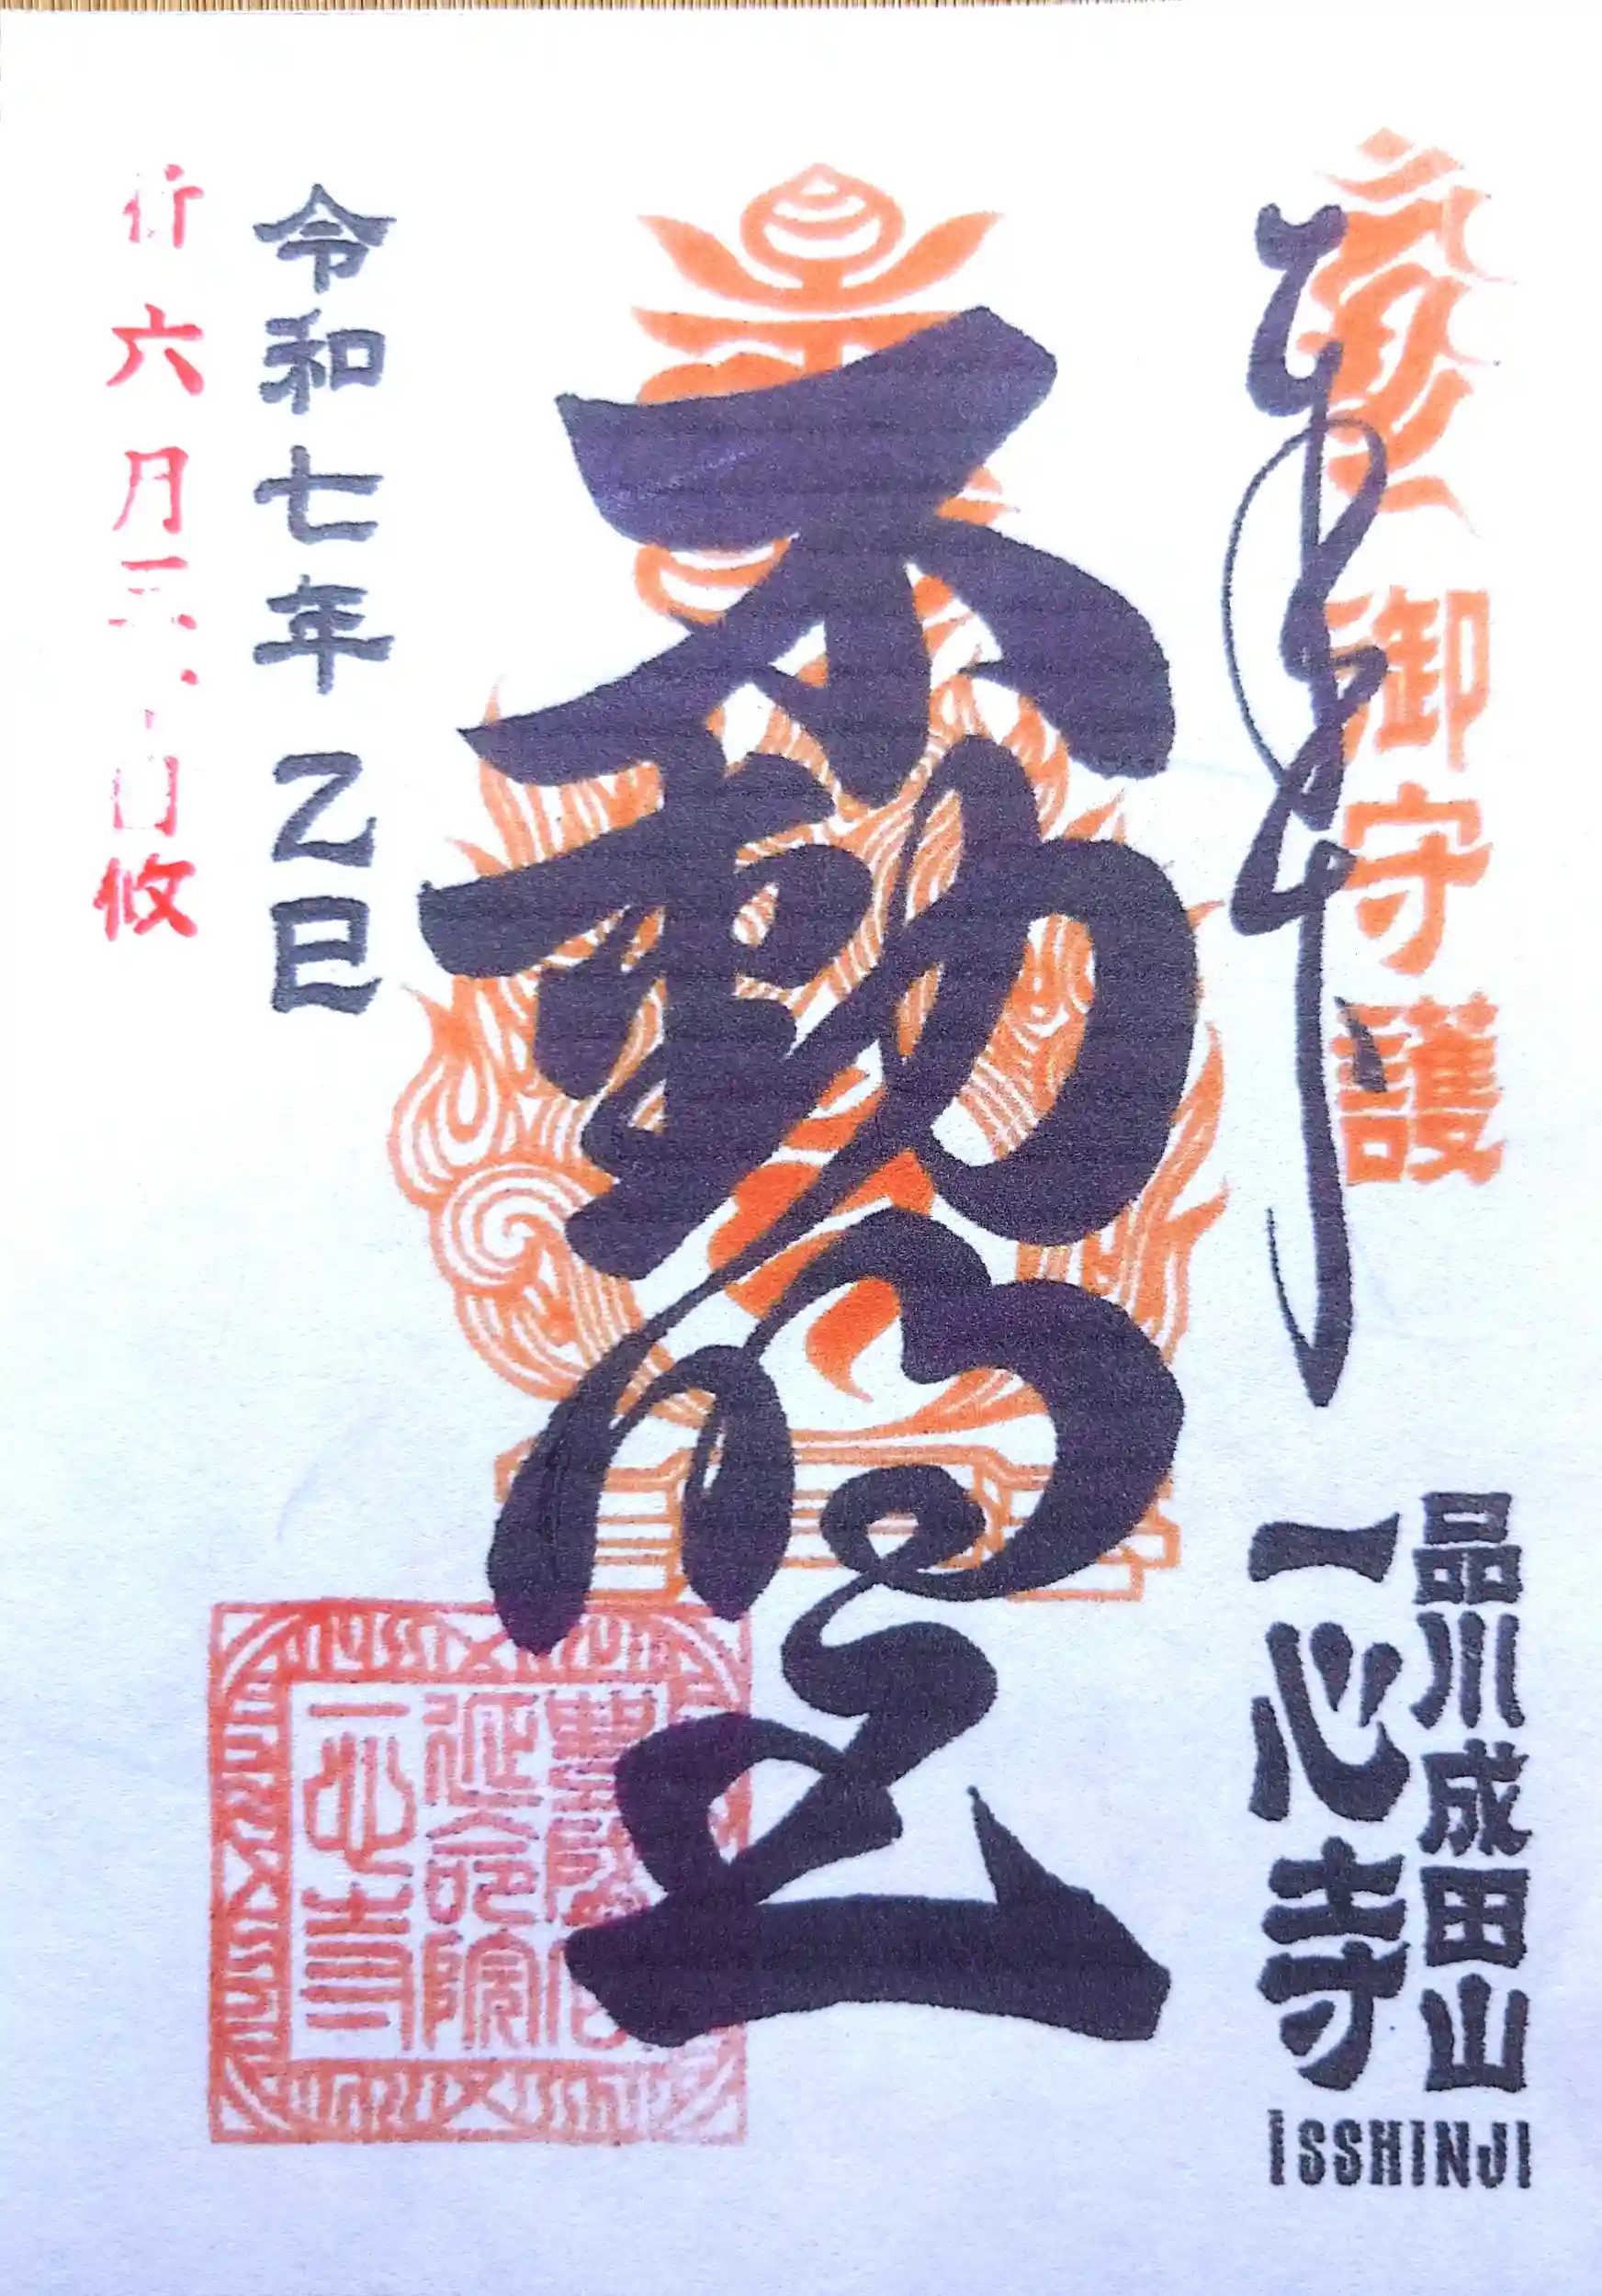 奉拝
御守護
品川成田山
一心寺
ISSHINJI
不動明王
豊盛山
延命院
一心寺
令和七年乙巳
六月三